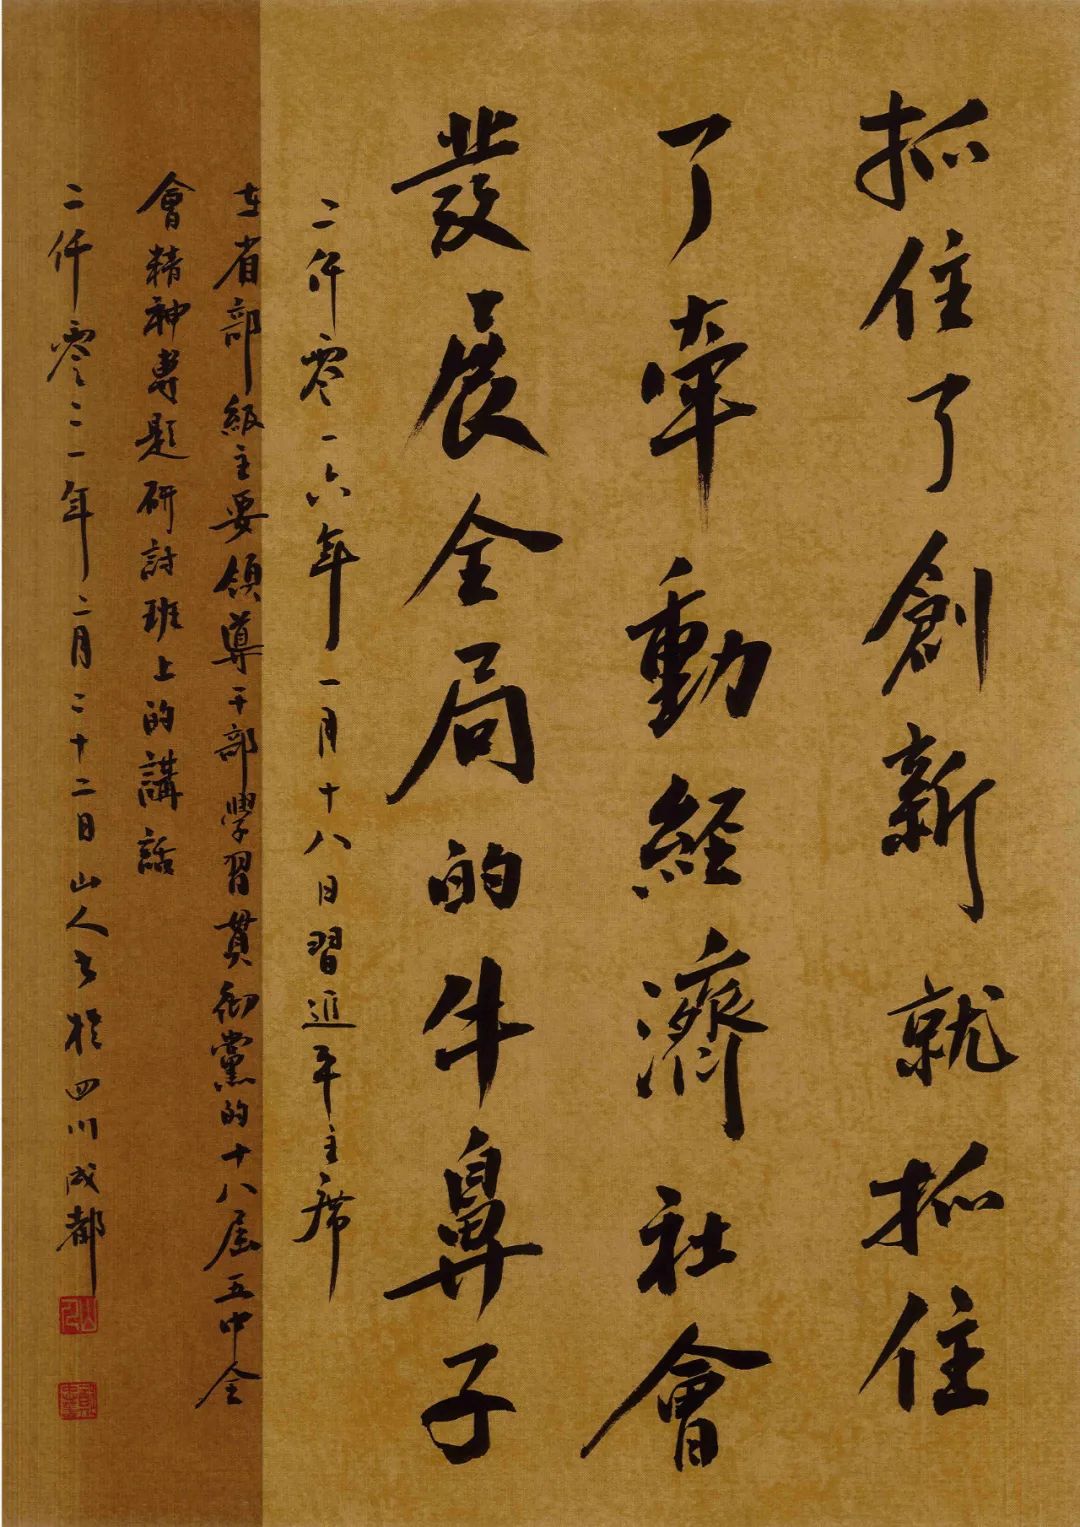 抓住了創新就抓住
了牽動經濟社會
發展全局的牛鼻子
二仟零一六年一月十八日習近平主席
在省部級主要領導干部學習貫彻黨的十八屆五中全
會精神專題研討班上的講話
二仟零二一年二月二十二日山人书於四川成都